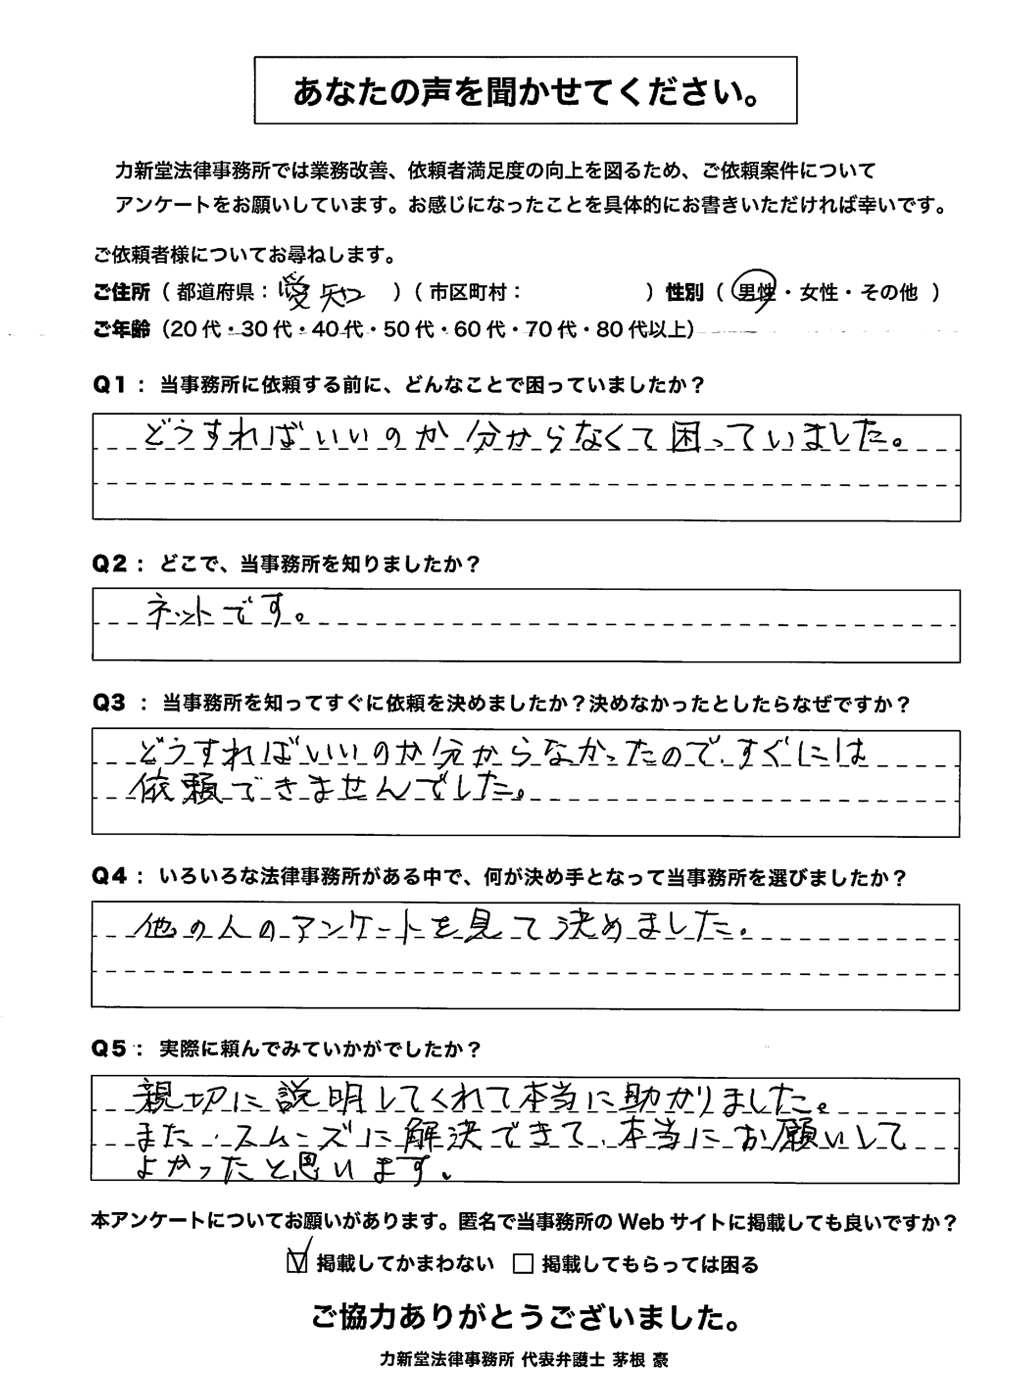 あなたの声を聞かせてください。
力新堂法律事務所では業務改善、依頼者満足度の向上を図るため、ご依頼案件について
アンケートをお願いしています。お感じになったことを具体的にお書きいただければ幸いです。
ご依頼者様についてお尋ねします。
ご住所（都道府県：愛知）（市区町村：　　　　）性別（男性・女性・その他）
ご年齢（20代・30代・40代・50代・60代・70代・80代以上）
Q1：当事務所に依頼する前に、どんなことで困っていましたか？
どうすればいいのか分からなくて困っていました。
Q2：どこで、当事務所を知りましたか？
ネットです。
Q3：当事務所を知ってすぐに依頼を決めましたか？決めなかったとしたらなぜですか？
どうすればいいのか分からなかったので、すぐには
依頼できませんでした。
Q4：いろいろな法律事務所がある中で、何が決め手となって当事務所を選びましたか？
他の人のアンケートを見て決めました。
Q5：実際に頼んでみていかがでしたか？
親切に説明してくれて本当に助かりました。
また、スムーズに解決できて、本当にお願いして
よかったと思います。
本アンケートについてお願いがあります。匿名で当事務所のWebサイトに掲載しても良いですか？
☑掲載してかまわない　□掲載してもらっては困る
ご協力ありがとうございました。
力新堂法律事務所 代表弁護士 茅根 豪